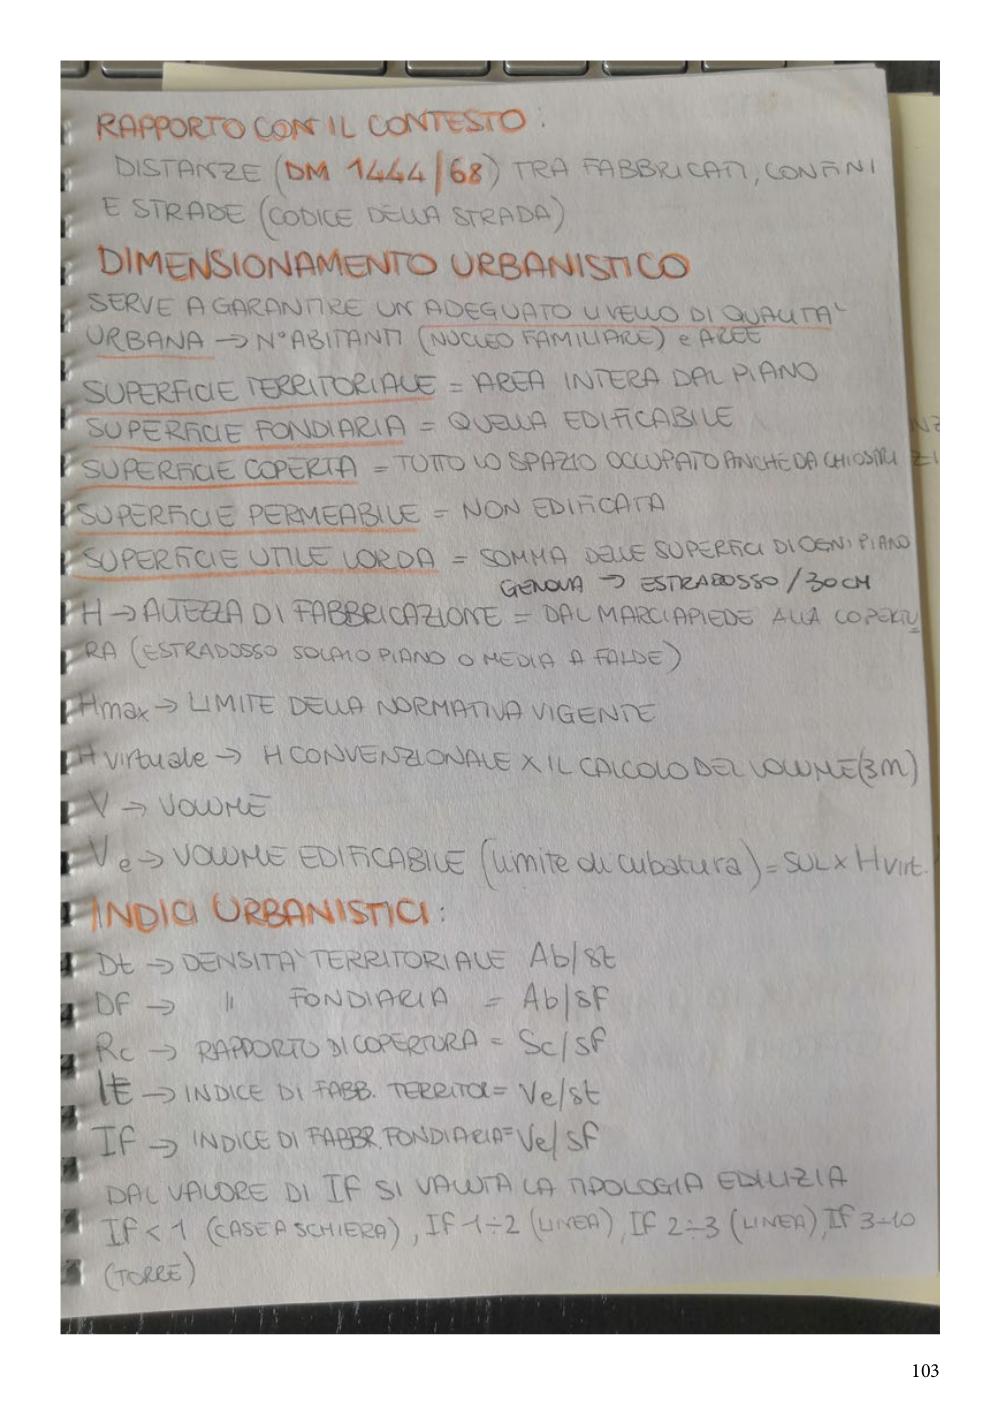 RAPPORTO CON IL CONTESTO:
DISTANZE (DM 1444/68) TRA FABBRICATI, CONFINI
E STRADE (CODICE DELLA STRADA)
DIMENSIONAMENTO URBANISTICO
SERVE A GARANTIRE UN ADEGUATO LIVELLO DI QUALITA'
URBANA → N° ABITANTI (NUCLEO FAMILIARE) e AREE
SUPERFICIE TERRITORIALE = AREA INTERA DAL PIANO
SUPERFICIE FONDIARIA = QUELLA EDIFICABILE
SUPERFICIE COPERTA = TUTTO LO SPAZIO OCCUPATO ANCHE DA CHIOSTRI
SUPERFICIE PERMEABILE = NON EDIFICATA
SUPERFICIE UTILE LORDA = SOMMA DELLE SUPERFICI DI OGNI PIANO
GENOVA → ESTRADOSSO/30CM
H → ALTEZZA DI FABBRICAZIONE = DAL MARCIAPIEDE ALLA COPERTU
RA (ESTRADOSSO SOLAIO PIANO O MEDIA A FALDE)
Hmax → LIMITE DELLA NORMATIVA VIGENTE
H virtuale → H CONVENZIONALE X IL CALCOLO DEL VOLUME (3m)
V → VOLUME
Ve → VOLUME EDIFICABILE (limite di cubatura) = SUL x Hvirt.
INDICI URBANISTICI:
Dt → DENSITA' TERRITORIALE Ab/St
DF → " FONDIARIA = Ab/SF
Rc → RAPPORTO DI COPERTURA = Sc/Sf
It → INDICE DI FABB. TERRITOR = Ve/St
If → INDICE DI FABBR. FONDIARIA = Ve/Sf
DAL VALORE DI IF SI VALUTA LA TIPOLOGIA EDILIZIA
If < 1 (CASE A SCHIERA), If 1÷2 (LINEA), If 2÷3 (LINEA), If 3÷10
(TORRE)
103